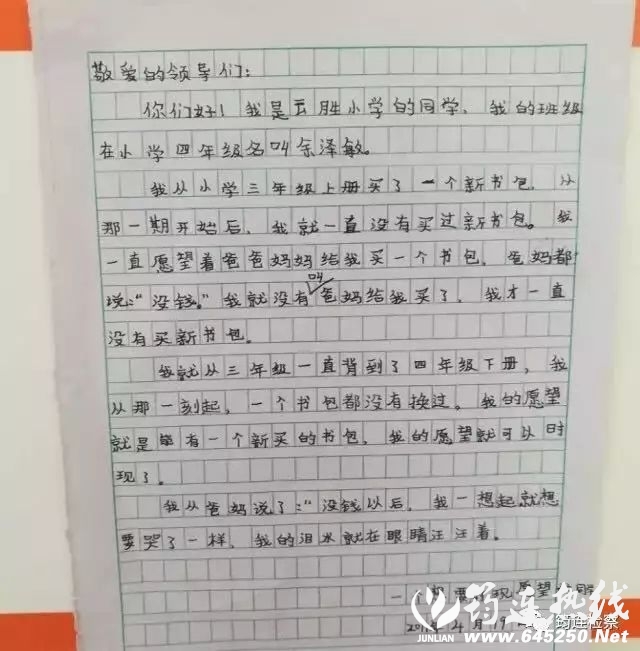 敬爱的领导们:
你们好!我是云胜小学的同学,我的班级
在小学四年级名叫余泽敏。
我从小学三年级上册买了一个新书包,从
那一期开始后,我就一直没有买过新书包。我
一直愿望着爸爸妈妈给我买一个书包,爸妈都
说:“没钱。”我就没有叫爸妈给我买了,我才一直
没有买新书包。
我就从三年级一直背到了四年级下册,我
从那一刻起,一个书包都没有换过。我的愿望
就是能有一个新买的书包,我的愿望就可以时
现了。
我从爸妈说了:“没钱以后,我一想起就想
要哭了一样,我的泪水就在眼睛汪汪着。
现愿望
4月19
筠连热线
JUNLIAN
www.645250.Net
筠连检察